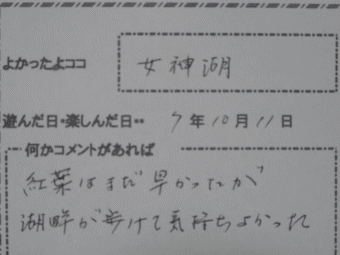 よかったよココ 女神湖
遊んだ日・楽しんだ日・・ 7年10月11日
何かコメントがあれば
紅葉はまだ早かったが
湖畔が歩けて気持ちよかった